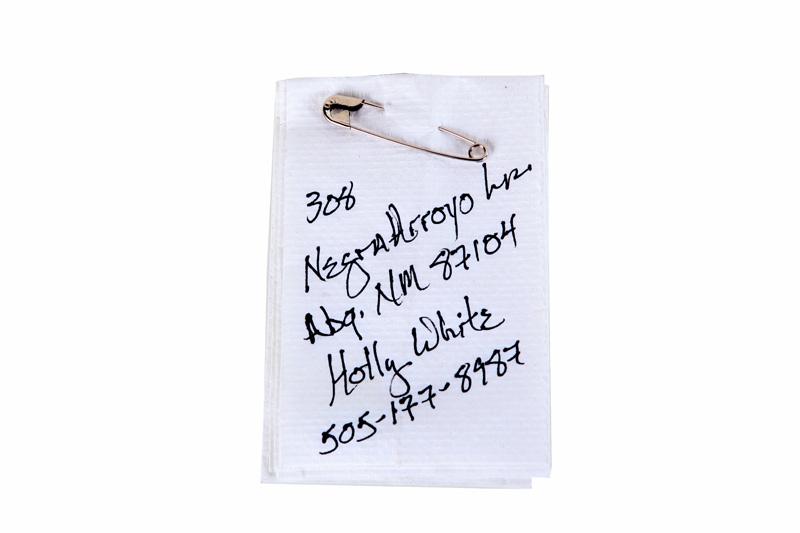 308
Negra Arroyo Ln.
Abq. NM 87104
Holly White
505-177-8987